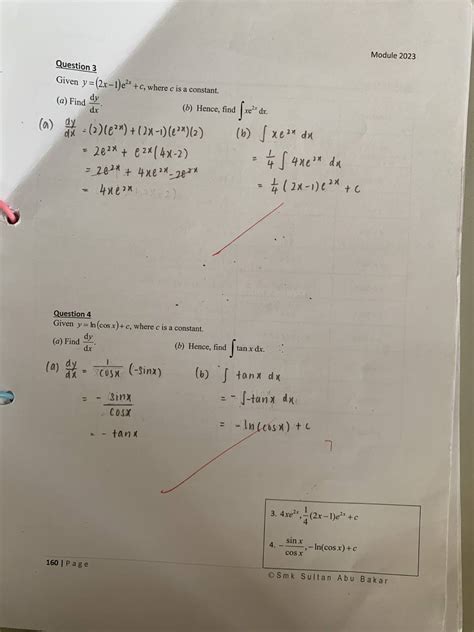 Module 2023
Question 3
Given y = (2x−1)e^{2x} + c, where c is a constant.
(a) Find dy/dx. (b) Hence, find ∫xe^{2x} dx.
(a) dy/dx = (2)(e^{2x}) + (2x-1)(e^{2x})(2) (b) ∫ xe^{2x} dx
= 2e^{2x} + e^{2x}(4x-2) = 1/4 ∫ 4xe^{2x} dx
= 2e^{2x} + 4xe^{2x} - 2e^{2x} = 1/4 (2x-1)e^{2x} + c
= 4xe^{2x}
Question 4
Given y = ln(cos x) + c, where c is a constant.
(a) Find dy/dx. (b) Hence, find ∫tan x dx.
(a) dy/dx = 1/cosx (-sinx) (b) ∫ tanx dx
= - sinx/cosx = - ∫-tanx dx
= - tanx = -ln(cosx) + c
3. 4xe^{2x}, 1/4(2x−1)e^{2x} + c
4. −sin x/cos x, −ln(cos x) + c
160 | Page
©Smk Sultan Abu Bakar